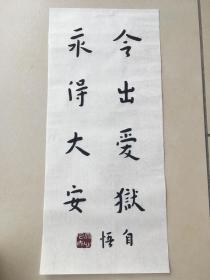 令出爱獄
永得大安
自悟